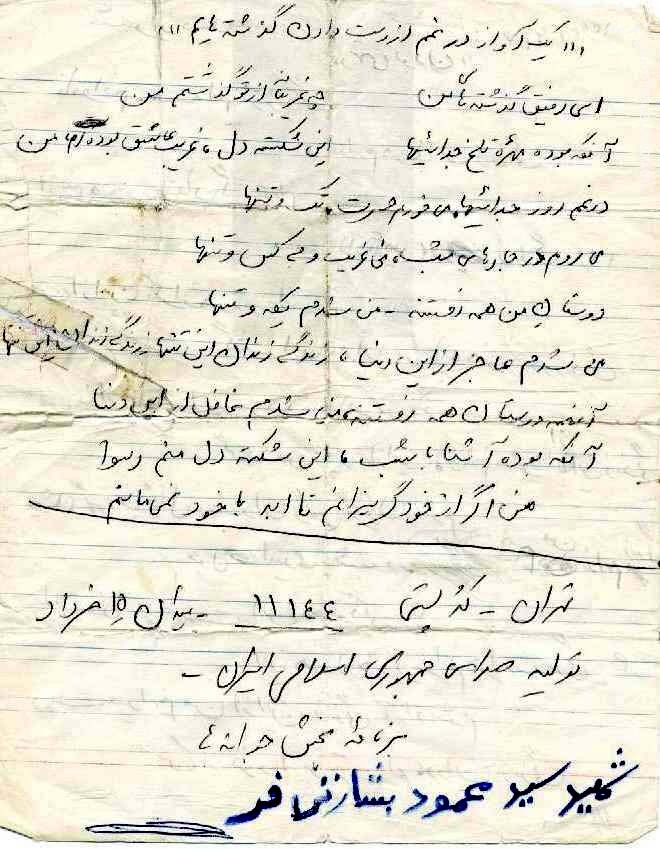 ،،، یک آواز در غم از دست دادن گذشته هایم ،،،
ای رفیق گذشته های من چه غریبانه از تو گذشتم من
آنکه بوده همره تلخ جدائیها این شکسته دل ، غریب عاشق بوده ام من
در غم روز جدائیها، می خورم حسرت، تک و تنها
می روم در جاده های شب، من غریب و بی کس و تنها
دوستان من همه رفتند - من شدم یکه و تنها
من شدم عاجز از این دنیا ، زندگی زندان این تنها زندگی زندان این تنها
همه دوستان همه رفتند، من شدم غافل از این دنیا
آنکه بوده آشنا با شب ، این شکسته دل منم رسوا
من اگر از خود گریزانم تا ابد با خود نمی مانم
تهران - کد پستی ۱۱۱۴۴ - میدان ۱۵ خرداد
تولید صدای جمهوری اسلامی ایران -
برنامهٔ بخش جوانه ها
شهید سید محمود بشارتی فر